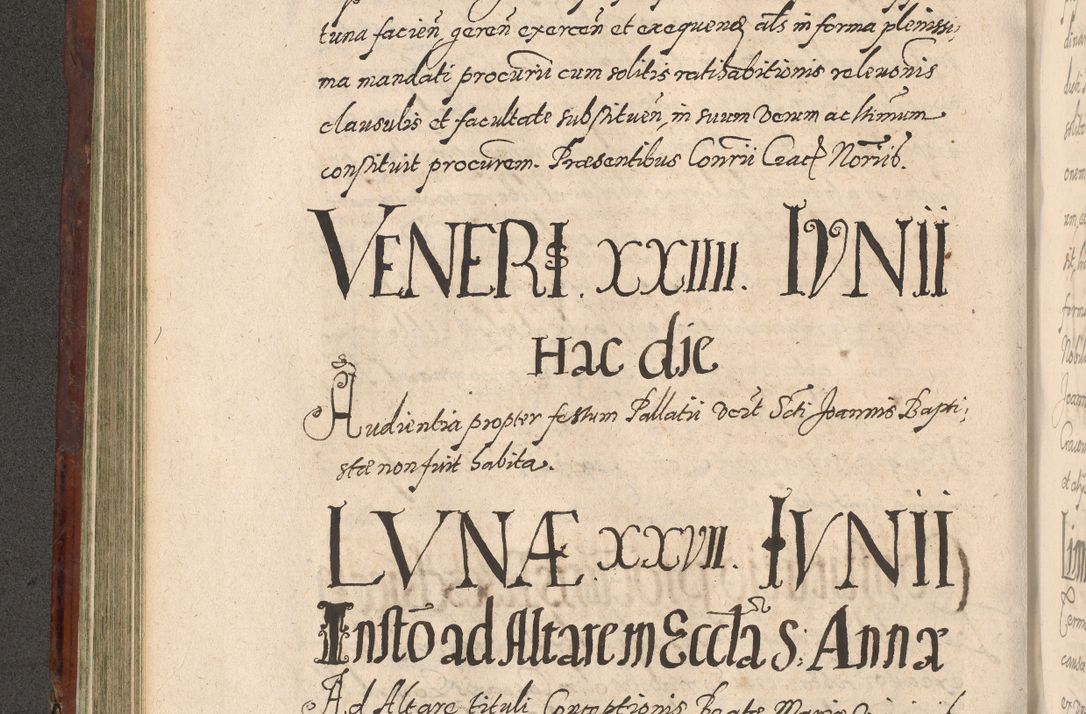 tuna facien̄, geren̄ exercen̄ et exequen̄ als in forma plenissi,
ma mandati procurii cum solitis ratihabitionis relevonis
clausulis et facultate substituen̄, in suum verum ac ltimum
constituit procurem. Præsentibus Conrii Crac Noriis.
VENERIS. XXIIII. IVNII
Hac die
Audientia propter festum Pallatii vert Scti Joannis Bapti,
stæ non fuit habita.
LVNÆ. XXVII. IVNII
Institō ad Altare in Ecclā S: Annæ
Ad Altare tituli Conceptionis Beate Mariæ